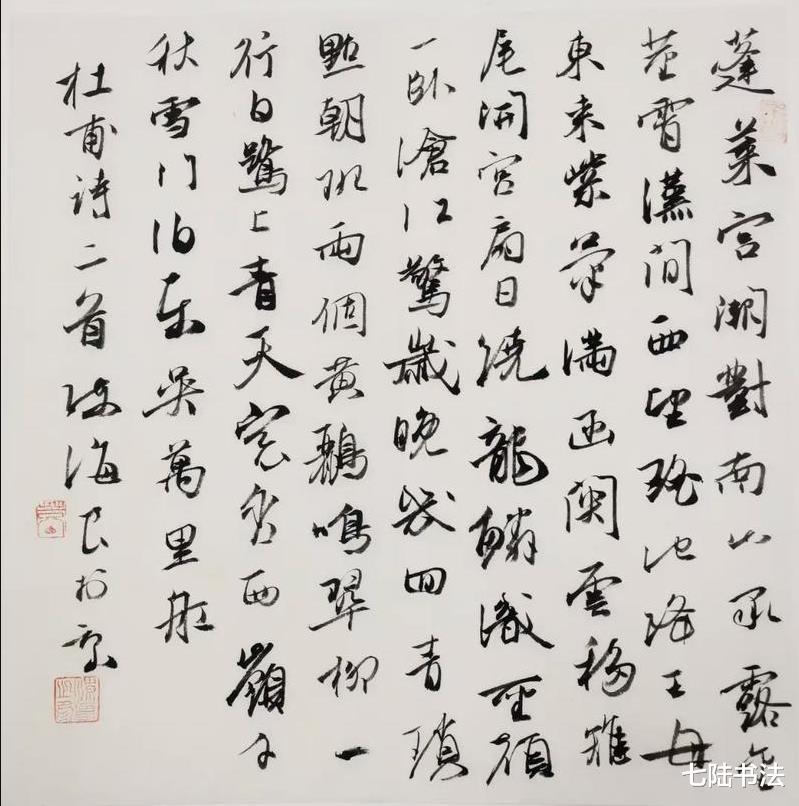 蓬萊宮闕對南山承露金
莖霄漢間西望瑤池降王母
東來紫氣滿函關雲移雉
尾開宮扇日繞龍鱗識聖顏
一臥滄江驚歲晚幾回青瑣
點朝班兩個黃鸝鳴翠柳一
行白鷺上青天窗含西嶺千
秋雪門泊東吳萬里船
杜甫詩二首陳海良於京
七陆书法